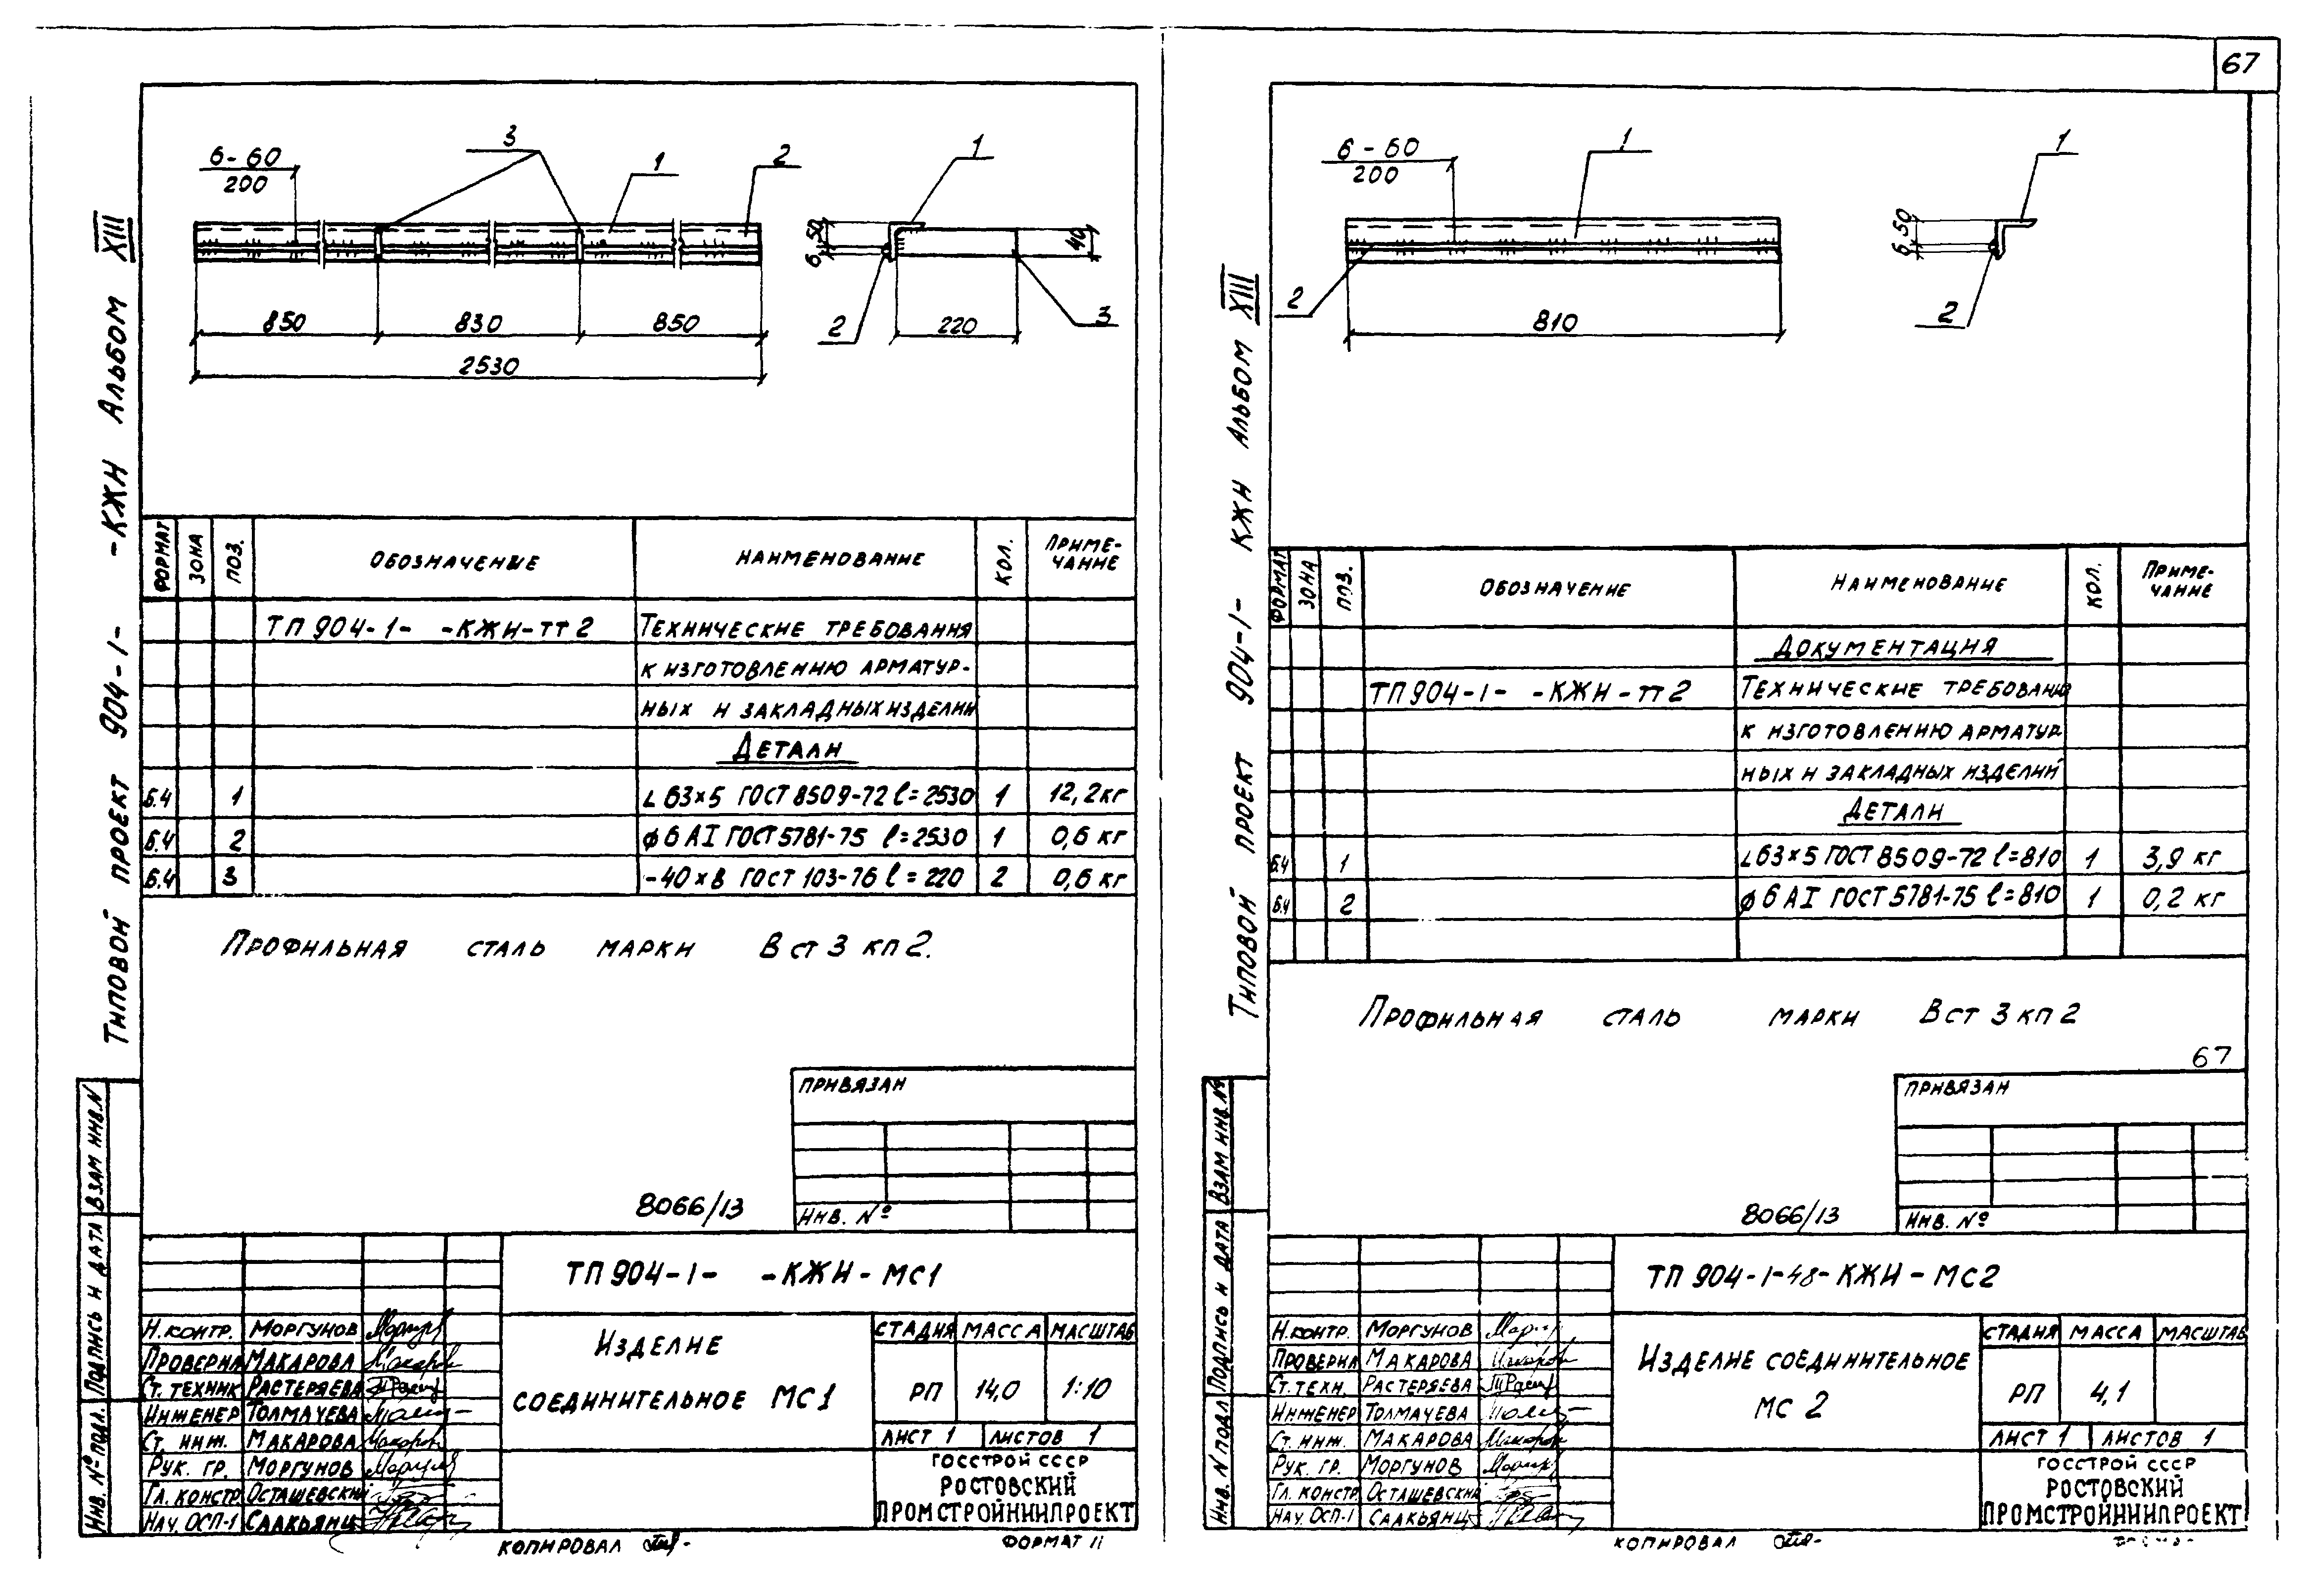 67
ТИПОВОЙ ПРОЕКТ 904-1- -КЖИ АЛЬБОМ XIII
6-60
200
3
1
2
850
830
850
2530
1
50
6
40
2
220
3
ФОРМАТ ЗОНА ПОЗ. ОБОЗНАЧЕНИЕ НАИМЕНОВАНИЕ КОЛ. ПРИМЕ-
ЧАНИЕ
ТП 904-1- -КЖИ-ТТ2 ТЕХНИЧЕСКИЕ ТРЕБОВАНИЯ
К ИЗГОТОВЛЕНИЮ АРМАТУР-
НЫХ И ЗАКЛАДНЫХ ИЗДЕЛИЙ
ДЕТАЛИ
Б.Ч 1 L 63×5 ГОСТ 8509-72 l=2530 1 12,2 кг
Б.Ч 2 ф 6 АI ГОСТ 5781-75 l=2530 1 0,6 кг
Б.Ч 3 -40×8 ГОСТ 103-76 l=220 2 0,6 кг
ПРОФИЛЬНАЯ СТАЛЬ МАРКИ В СТ 3 КП 2.
ПРИВЯЗАН
ИНВ. №
8066/13
ВЗАМ ИНВ.N
ПОДПИСЬ И ДАТА
ИНВ. № ПОДЛ.
ТП 904-1- -КЖИ-МС1
ИЗДЕЛИЕ
СОЕДИНИТЕЛЬНОЕ МС1
СТАДИЯ МАССА МАСШТАБ
РП 14,0 1:10
ЛИСТ 1 ЛИСТОВ 1
ГОССТРОЙ СССР
РОСТОВСКИЙ
ПРОМСТРОЙНИИПРОЕКТ
Н.КОНТР. МОРГУНОВ
ПРОВЕРИЛ МАКАРОВА
СТ. ТЕХНИК РАСТЕРЯЕВА
ИНЖЕНЕР ТОЛМАЧЕВА
СТ. ИНЖ. МАКАРОВА
РУК. ГР. МОРГУНОВ
ГЛ. КОНСТР. ОСТАШЕВСКИЙ
НАЧ. ОСП-1 СААКЬЯНЦ
КОПИРОВАЛ
ФОРМАТ 11
ТИПОВОЙ ПРОЕКТ 904-1- КЖИ АЛЬБОМ XIII
6-60
200
1
2
810
1
50
6
2
ФОРМАТ ЗОНА ПОЗ. ОБОЗНАЧЕНИЕ НАИМЕНОВАНИЕ КОЛ. ПРИМЕ-
ЧАНИЕ
ДОКУМЕНТАЦИЯ
ТП 904-1- -КЖИ-ТТ2 ТЕХНИЧЕСКИЕ ТРЕБОВАНИЯ
К ИЗГОТОВЛЕНИЮ АРМАТУР
НЫХ И ЗАКЛАДНЫХ ИЗДЕЛИЙ
ДЕТАЛИ
Б.Ч 1 L 63×5 ГОСТ 8509-72 l=810 1 3,9 кг
Б.Ч 2 ф 6 АI ГОСТ 5781-75 l=810 1 0,2 кг
ПРОФИЛЬНАЯ СТАЛЬ МАРКИ В СТ 3 КП 2
67
ПРИВЯЗАН
ИНВ. №
8066/13
ВЗАМ ИНВ.№
ПОДПИСЬ И ДАТА
ИНВ. N ПОДЛ
ТП 904-1-48-КЖИ-МС2
ИЗДЕЛИЕ СОЕДИНИТЕЛЬНОЕ
МС 2
СТАДИЯ МАССА МАСШТАБ
РП 4,1
ЛИСТ 1 ЛИСТОВ 1
ГОССТРОЙ СССР
РОСТОВСКИЙ
ПРОМСТРОЙНИИПРОЕКТ
Н.КОНТР. МОРГУНОВ
ПРОВЕРИЛ МАКАРОВА
СТ. ТЕХН. РАСТЕРЯЕВА
ИНЖЕНЕР ТОЛМАЧЕВА
СТ. ИНЖ. МАКАРОВА
РУК. ГР. МОРГУНОВ
ГЛ. КОНСТР. ОСТАШЕВСКИЙ
НАЧ. ОСП-1 СААКЬЯНЦ
КОПИРОВАЛ